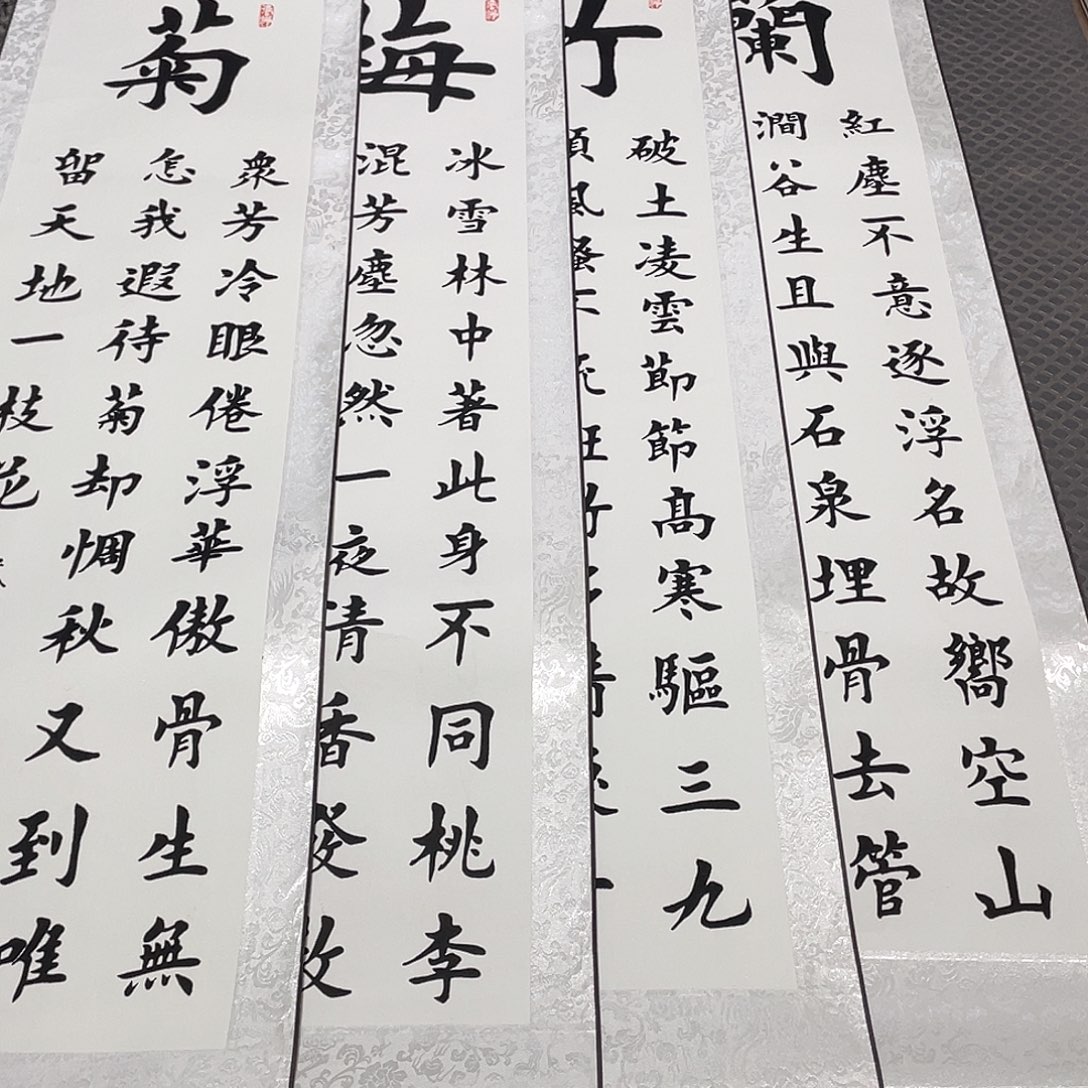 蘭
紅塵不意逐浮名故嚮空山
澗谷生且與石泉埋骨去管
竹
破土凌雲莭節髙寒驅三九
梅
冰雪林中著此身不同桃李
混芳塵忽然一夜清香發散
菊
衆芳冷眼倦浮華傲骨生無
怎我遐待菊却惆秋又到唯
留天地一枝花